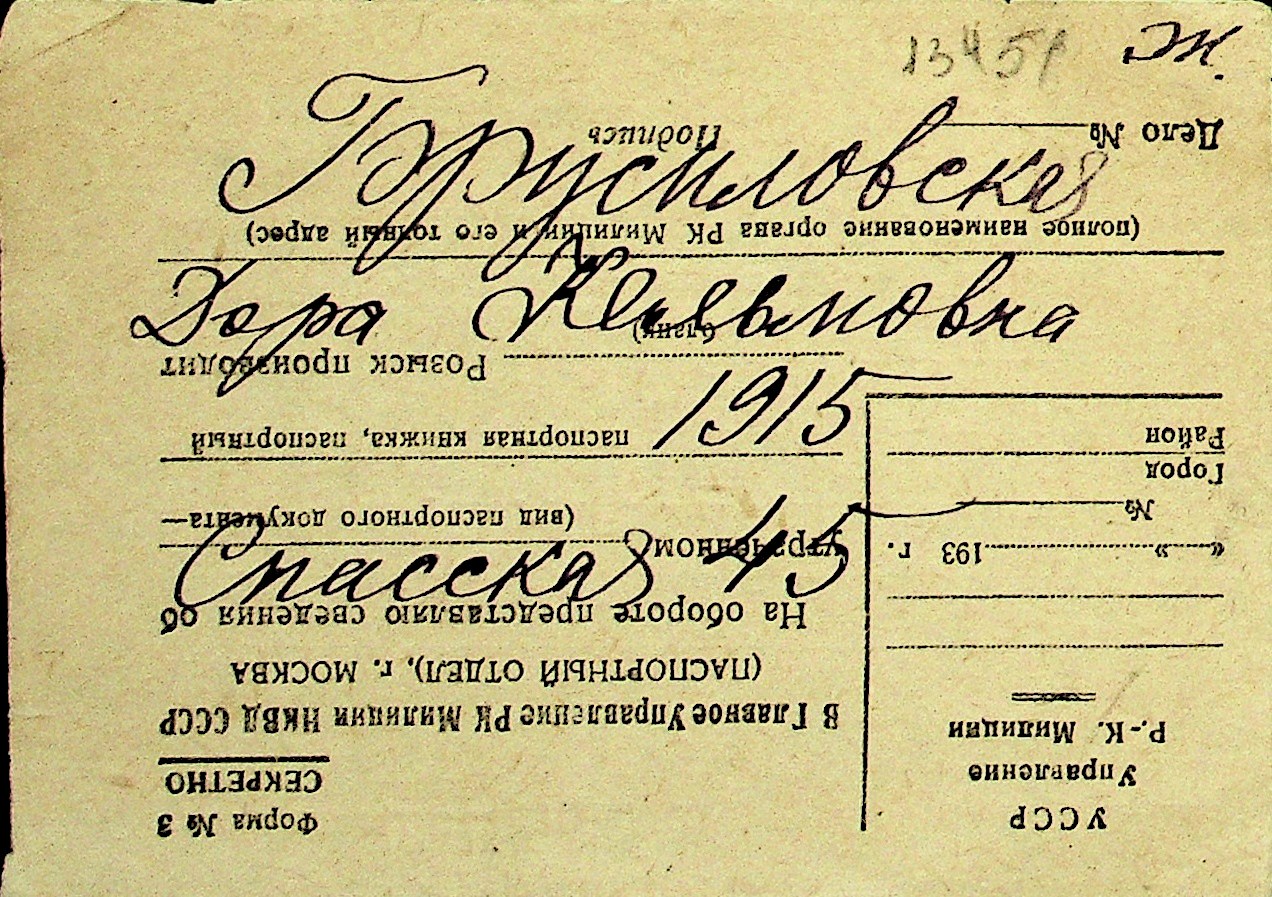 Брусиловская
Дора
1915
Спасская 45
УССР
Управление
Р.-К. Милиции
«___»___193 г.
№
Город
Район
Форма № 3
СЕКРЕТНО
В Главное Управление РК Милиции НКВД СССР
(ПАСПОРТНЫЙ ОТДЕЛ), г. МОСКВА
На обороте представляю сведения об
утраченном
(вид паспортного документа—
паспортная книжка, паспортный
бланк)
Розыск производит
(полное наименование органа РК Милиции и его точный адрес)
Дело №
Подпись